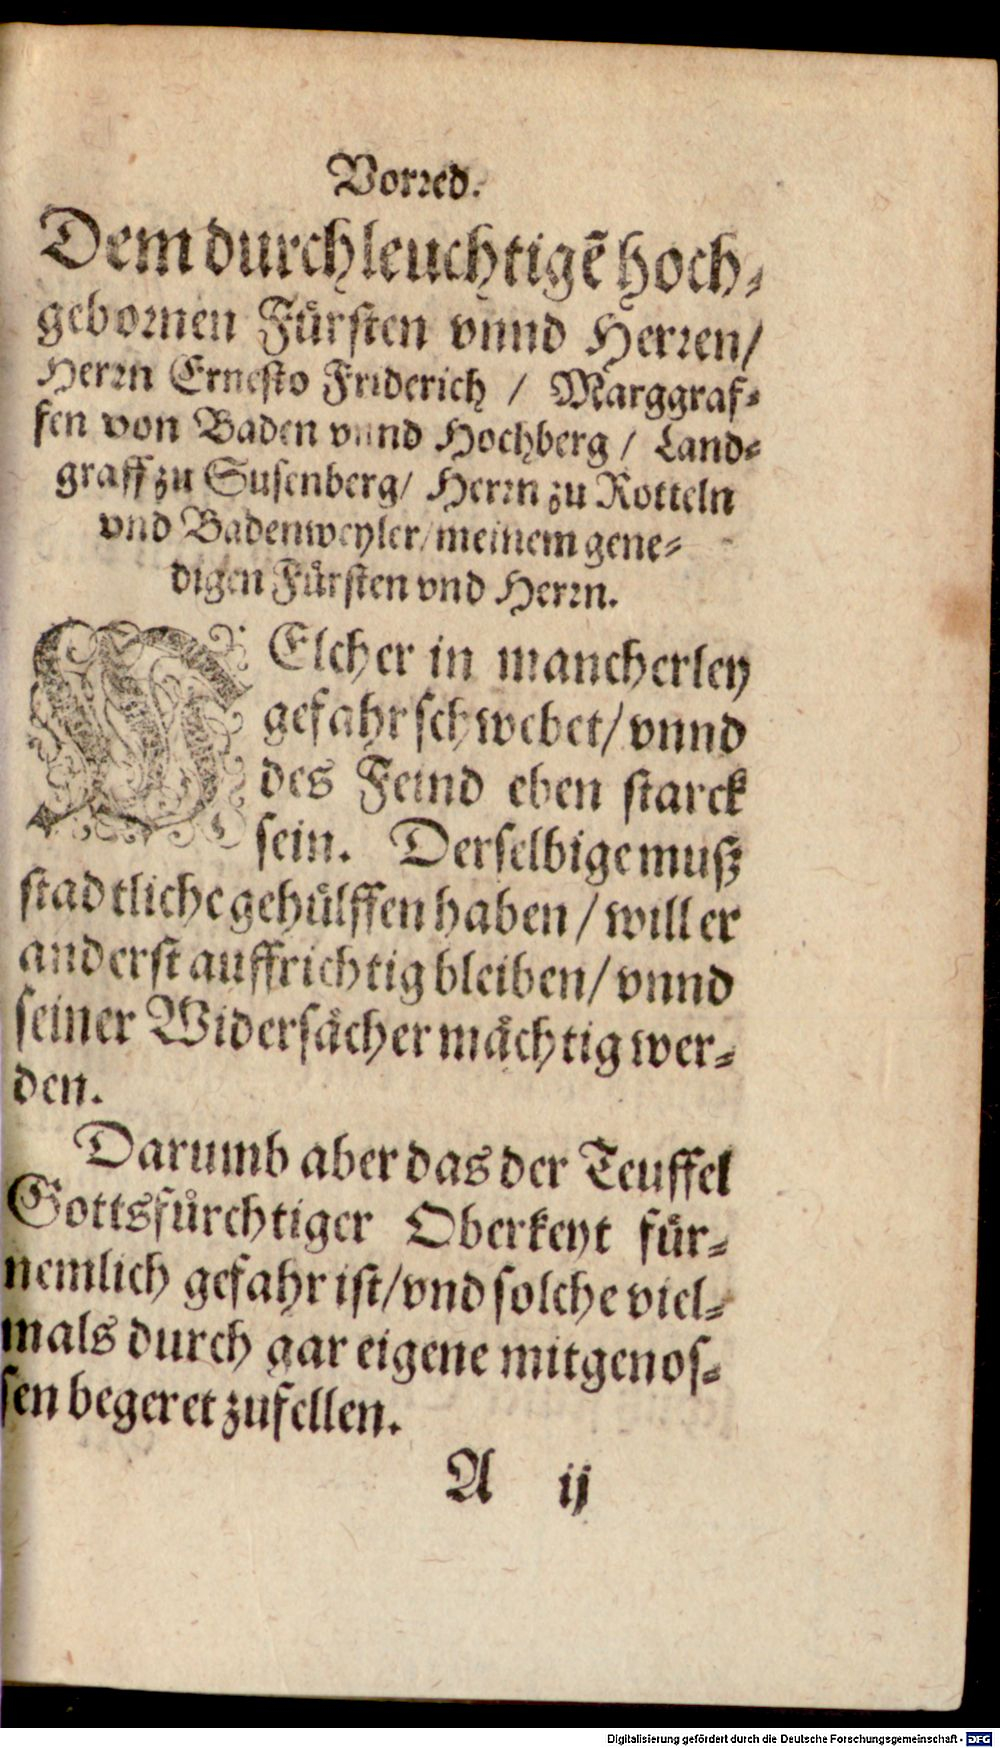 Vorred.
Dem durchleuchtigẽ hoch⸗
gebornen Fürsten vnnd Herren/
Herrn Ernesto Friderich / Marggraf⸗
fen von Baden vnnd Hochberg / Land⸗
graff zu Susenberg/ Herrn zu Rotteln
vnd Badenweyler/ meinem gene⸗
digen Fürsten vnd Herrn.
WElcher in mancherley
gefahr schwebet/ vnnd
des Feind eben starck
sein. Derselbige muß
stadtliche gehülffen haben / will er
anderst auffrichtig bleiben/ vnnd
seiner Widersächer mächtig wer⸗
den.
Darumb aber das der Teuffel
Gottsfürchtiger Oberkeyt für⸗
nemlich gefahr ist/ vnd solche viel⸗
mals durch gar eigene mitgenos⸗
sen begeret zufellen.
A ij
Digitalisierung gefördert durch die Deutsche Forschungsgemeinschaft - DFG